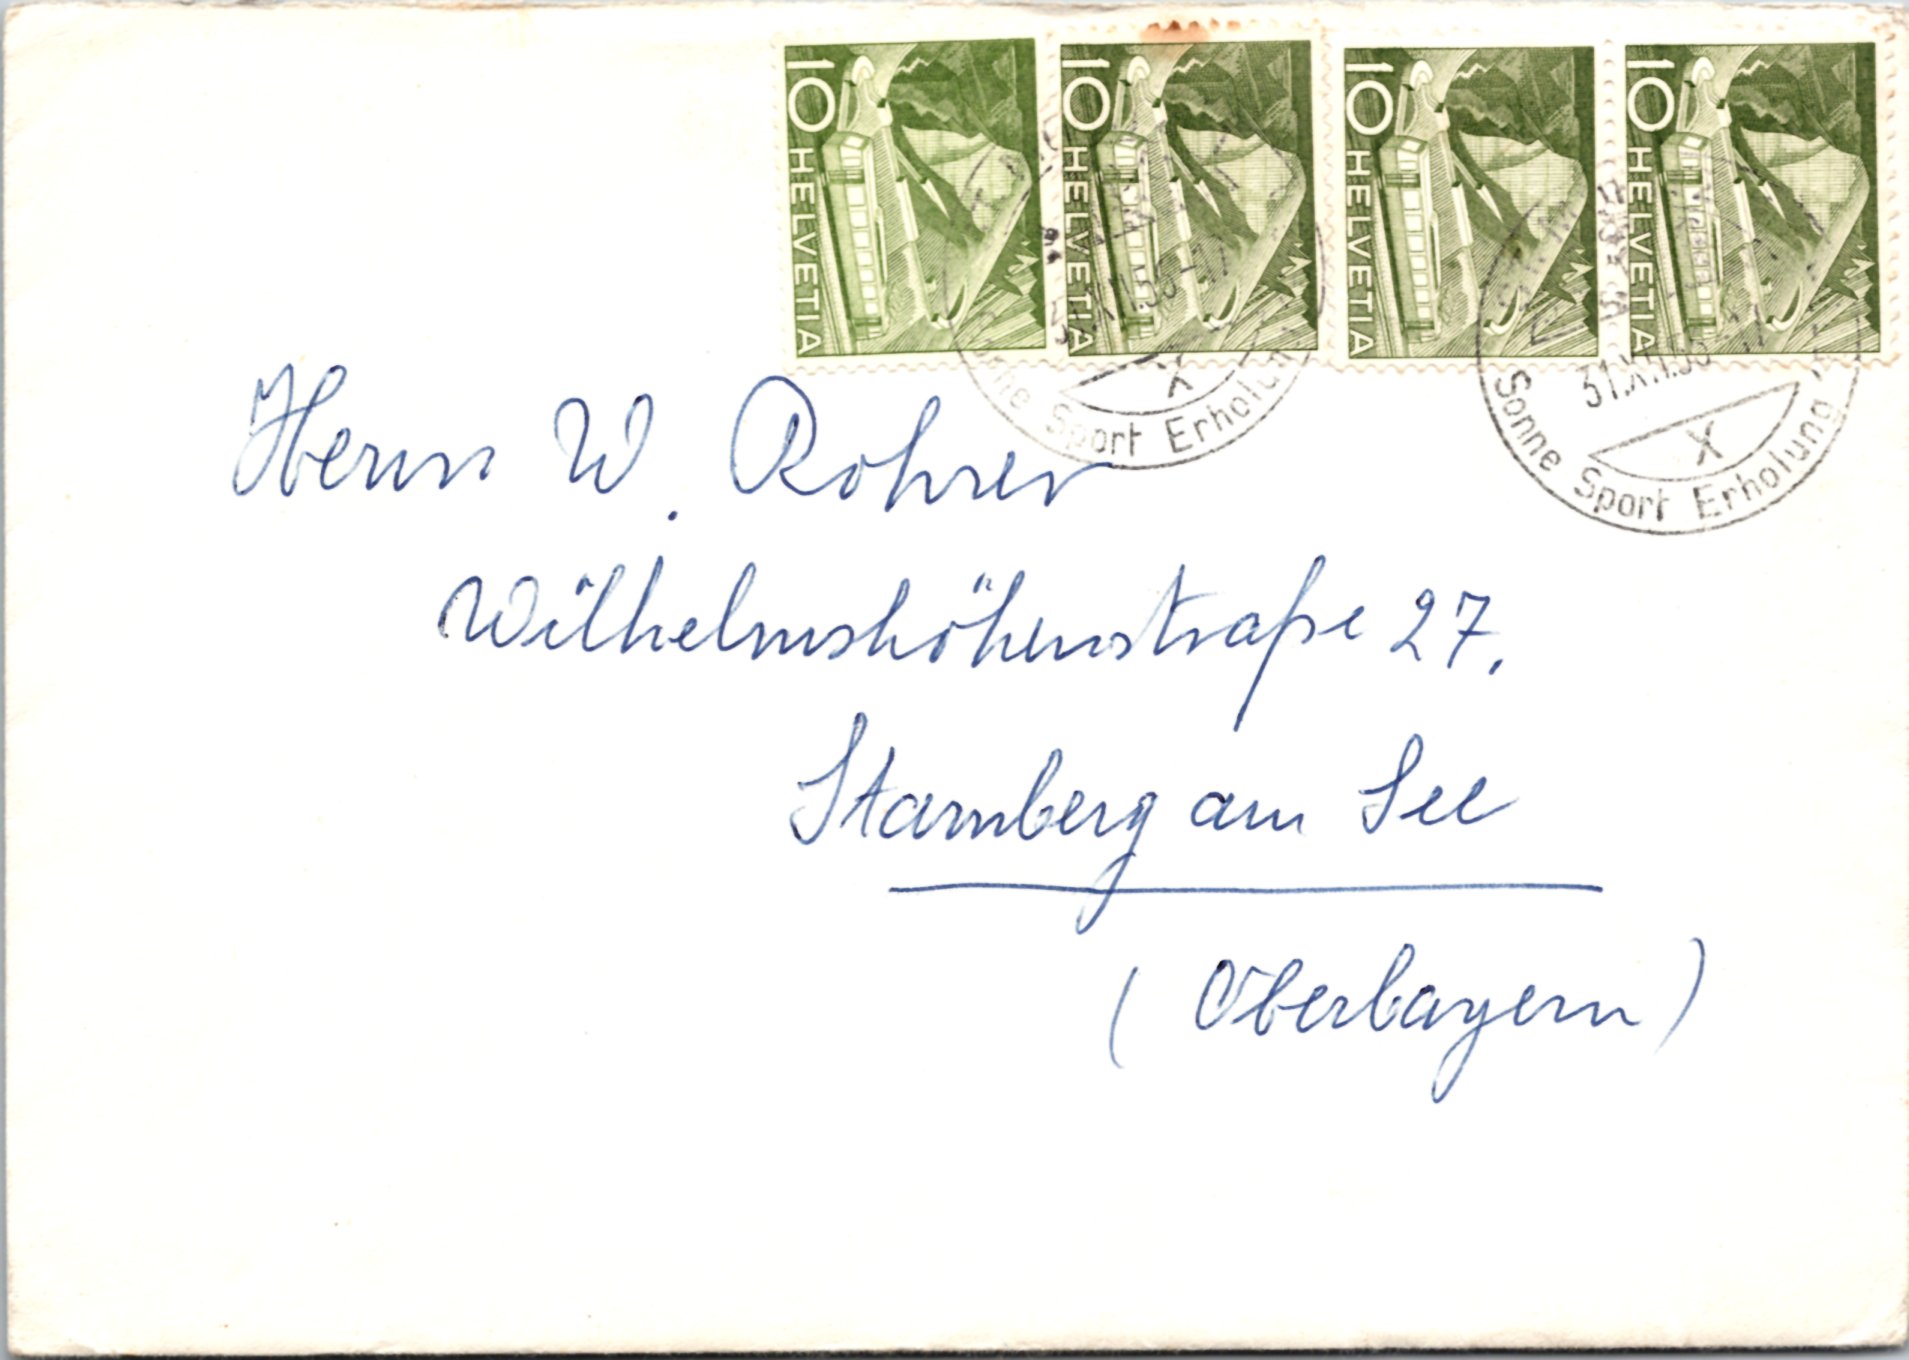 10 HELVETIA
10 HELVETIA
10 HELVETIA
10 HELVETIA
Sport Erholung
31.XII.
X
Sonne Sport Erholung
X
Herrn W. Rohrer
Wilhelmshöhenstraße 27.
Starnberg am See
(Oberbayern)